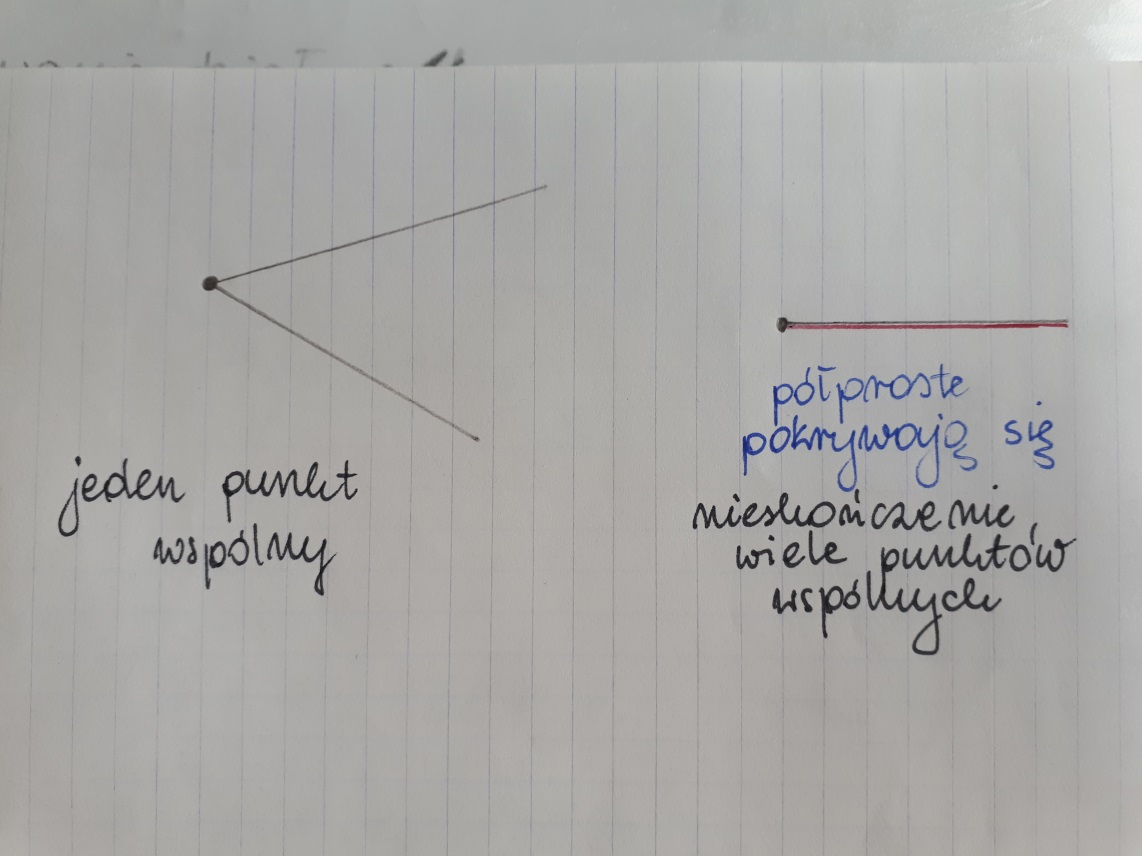 jeden punkt
wspólny
półproste
pokrywają się
nieskończenie
wiele punktów
wspólnych